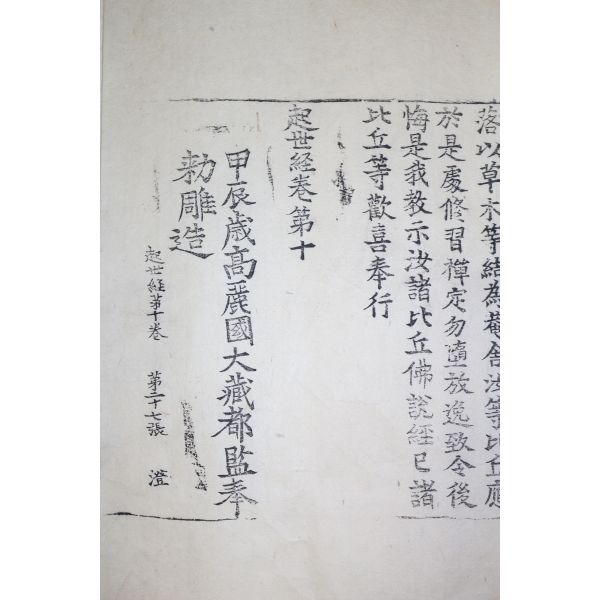 落以草木等結為菴舍汝等比丘應
於是處修習禪定勿墮放逸致令後
悔是我教示汝諸比丘佛說經已諸
比丘等歡喜奉行
起世經卷第十
甲辰歳高麗國大藏都監奉
勅雕造
起世經第十卷 第二十七張 澄